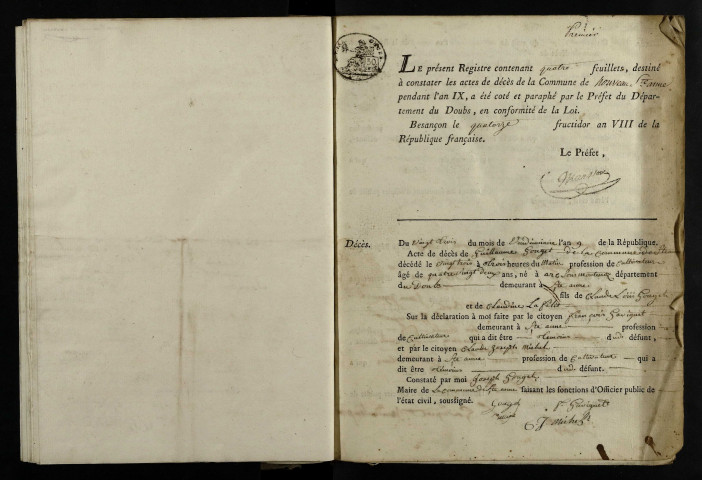 Premier
LE présent Registre contenant quatre feuillets, destiné
à constater les actes de décès de la Commune de
pendant l'an IX, a été coté et paraphé par le Préfet du Dépar-
tement du Doubs, en conformité de la Loi.
Besançon le quatorze fructidor an VIII de la
République française.
Le Préfet,
Décès.
Du vingt trois du mois de Vendémiaire l'an 9 de la République.
Acte de décès de Guillaume Gouget de la Commune de
décédé le vingt trois à trois heures du Matin profession de Cultivateur
âgé de quatre vingt deux ans, né à département
du Doubs demeurant à Ste anne
fils de Claude Louis Gouget
et de Claudine
Sur la déclaration à moi faite par le citoyen françois
demeurant à Ste anne profession
de Cultivateur qui a dit être dudit défunt,
et par le citoyen Claude Joseph Michel
demeurant à Ste anne profession de Cultivateur qui a
dit être dudit défunt.
Constaté par moi Joseph Gouget
Maire de la commune de Ste anne faisant les fonctions d'Officier public de
l'état civil, soussigné.
Gouget
maire
J Michel